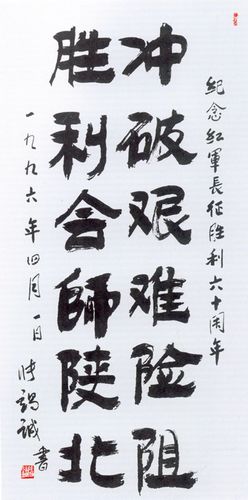 紀念红軍長征胜利六十周年
冲破艰难险阻
胜利会師陕北
一九九六年四月一日 张竭誠書